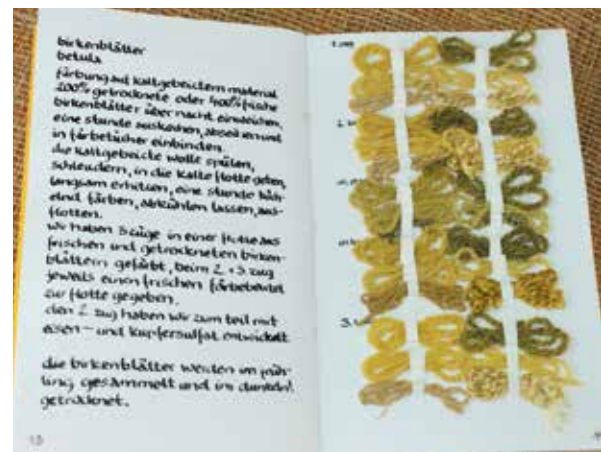 birkenblätter
betula
färbung auf kaltgebeiztem material
200% getrocknete oder 400% frische
birkenblätter über nacht einweichen,
eine stunde auskochen, abseihen und
in färbetücher einbinden.
die kaltgebeizte wolle spülen,
schleudern, in die kalte flotte geben,
langsam erhitzen, eine stunde
färben, abkühlen lassen, aus-
flotten.
wir haben 3 züge in einer flotte aus
frischen und getrockneten birken-
blättern gefärbt, beim 2 + 3. zug
jeweils einen frischen färbebeutel
zur flotte gegeben.
den 2 zug haben wir zum teil mit
eisen- und kupfersulfat entwickelt
die birkenblätter werden im früh-
ling gesammelt und im dunkeln
getrocknet.